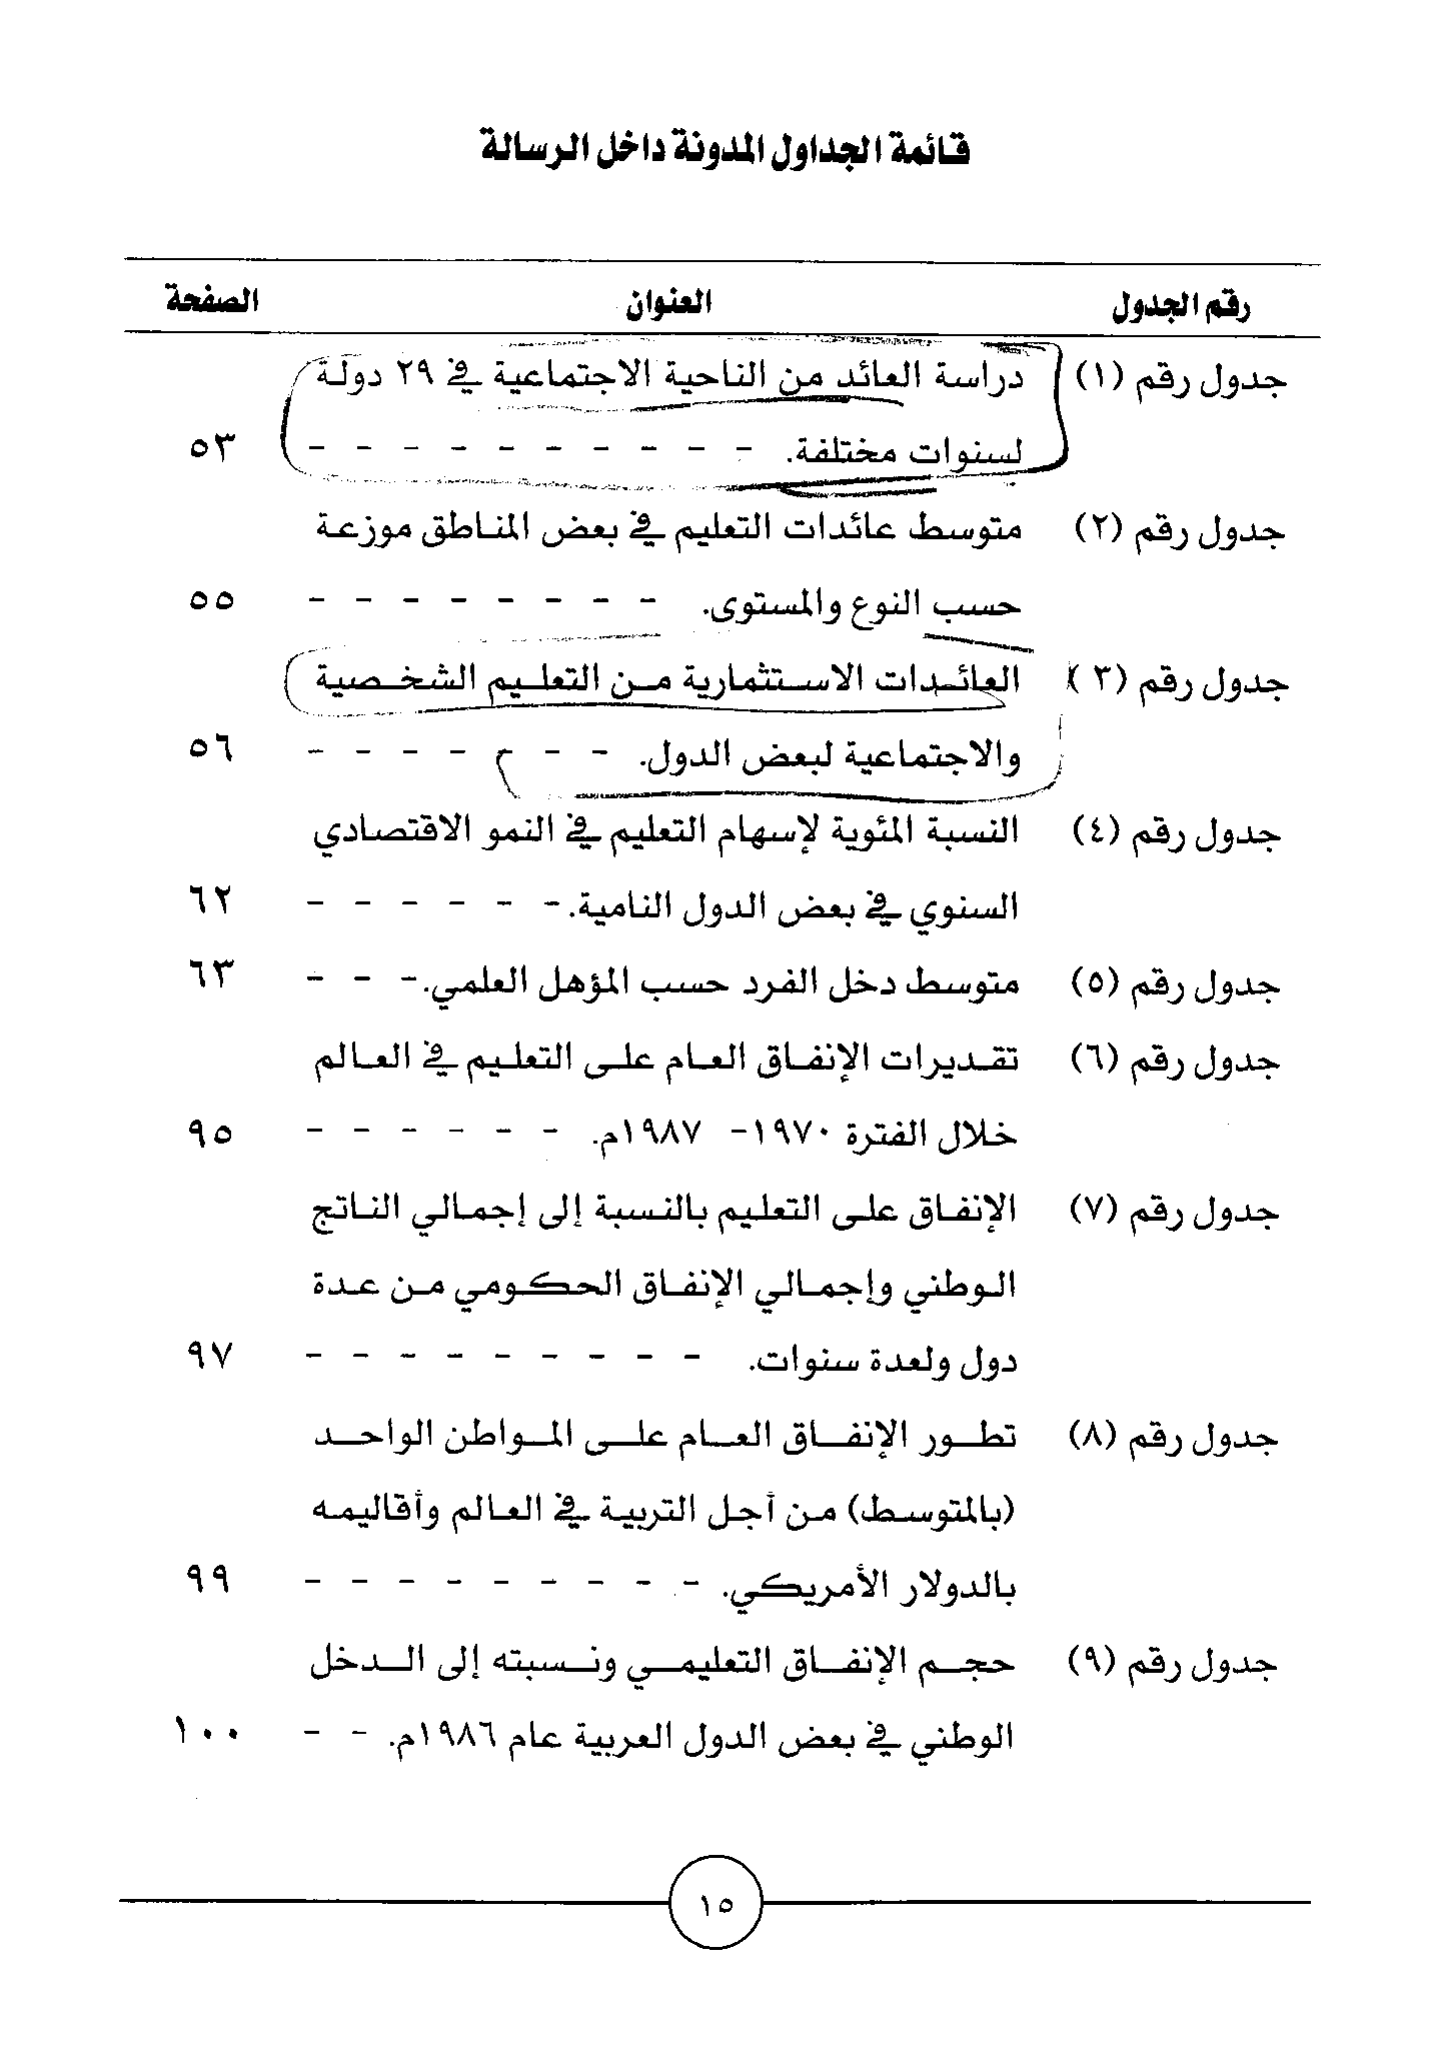 قائمة الجداول المدونة داخل الرسالة
رقم الجدول العنوان الصفحة
جدول رقم (١) دراسة العائد من الناحية الاجتماعية في ٢٩ دولة
لسنوات مختلفة. - - - - - - - - - - ٥٣
جدول رقم (٢) متوسط عائدات التعليم في بعض المناطق موزعة
حسب النوع والمستوى. - - - - - - - - ٥٥
جدول رقم (٣) العائدات الاستثمارية من التعليم الشخصية
والاجتماعية لبعض الدول. - - - - - - - ٥٦
جدول رقم (٤) النسبة المئوية لإسهام التعليم في النمو الاقتصادي
السنوي في بعض الدول النامية. - - - - - - ٦٢
جدول رقم (٥) متوسط دخل الفرد حسب المؤهل العلمي. - - - ٦٣
جدول رقم (٦) تقديرات الإنفاق العام على التعليم في العالم
خلال الفترة ١٩٧٠- ١٩٨٧م. - - - - - - ٩٥
جدول رقم (٧) الإنفاق على التعليم بالنسبة إلى إجمالي الناتج
الوطني وإجمالي الإنفاق الحكومي من عدة
دول ولعدة سنوات. - - - - - - - - - ٩٧
جدول رقم (٨) تطور الإنفاق العام على المواطن الواحد
(بالمتوسط) من أجل التربية في العالم وأقاليمه
بالدولار الأمريكي. - - - - - - - - - ٩٩
جدول رقم (٩) حجم الإنفاق التعليمي ونسبته إلى الدخل
الوطني في بعض الدول العربية عام ١٩٨٦م. - - ١٠٠
١٥